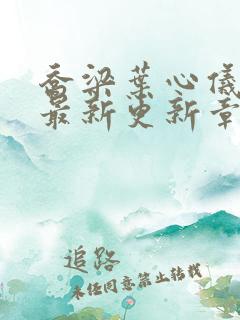 乔梁叶心仪
最新更新章
追路
未经同意禁止转载